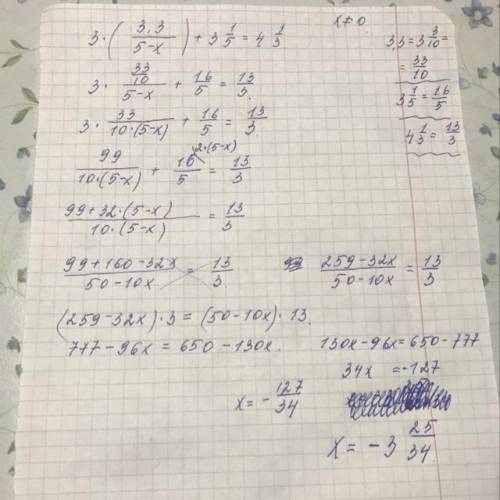 3·(3,3/(5-x)) + 3 1/5 = 4 1/3
x≠0
3,3 = 3 3/10 =
= 33/10
3 1/5 = 16/5
4 1/3 = 13/3
3· (33/10)/(5-x) + 16/5 = 13/3
3· 33/(10·(5-x)) + 16/5 = 13/3
99/(10·(5-x)) + 16/5 ^2·(5-x) = 13/3
(99+32·(5-x))/(10·(5-x)) = 13/3
(99+160-32x)/(50-10x) = 13/3
(259-32x)/(50-10x) = 13/3
(259-32x)·3 = (50-10x)·13
777-96x = 650-130x
130x-96x = 650-777
34x = -127
x = - 127/34
x = -3 25/34